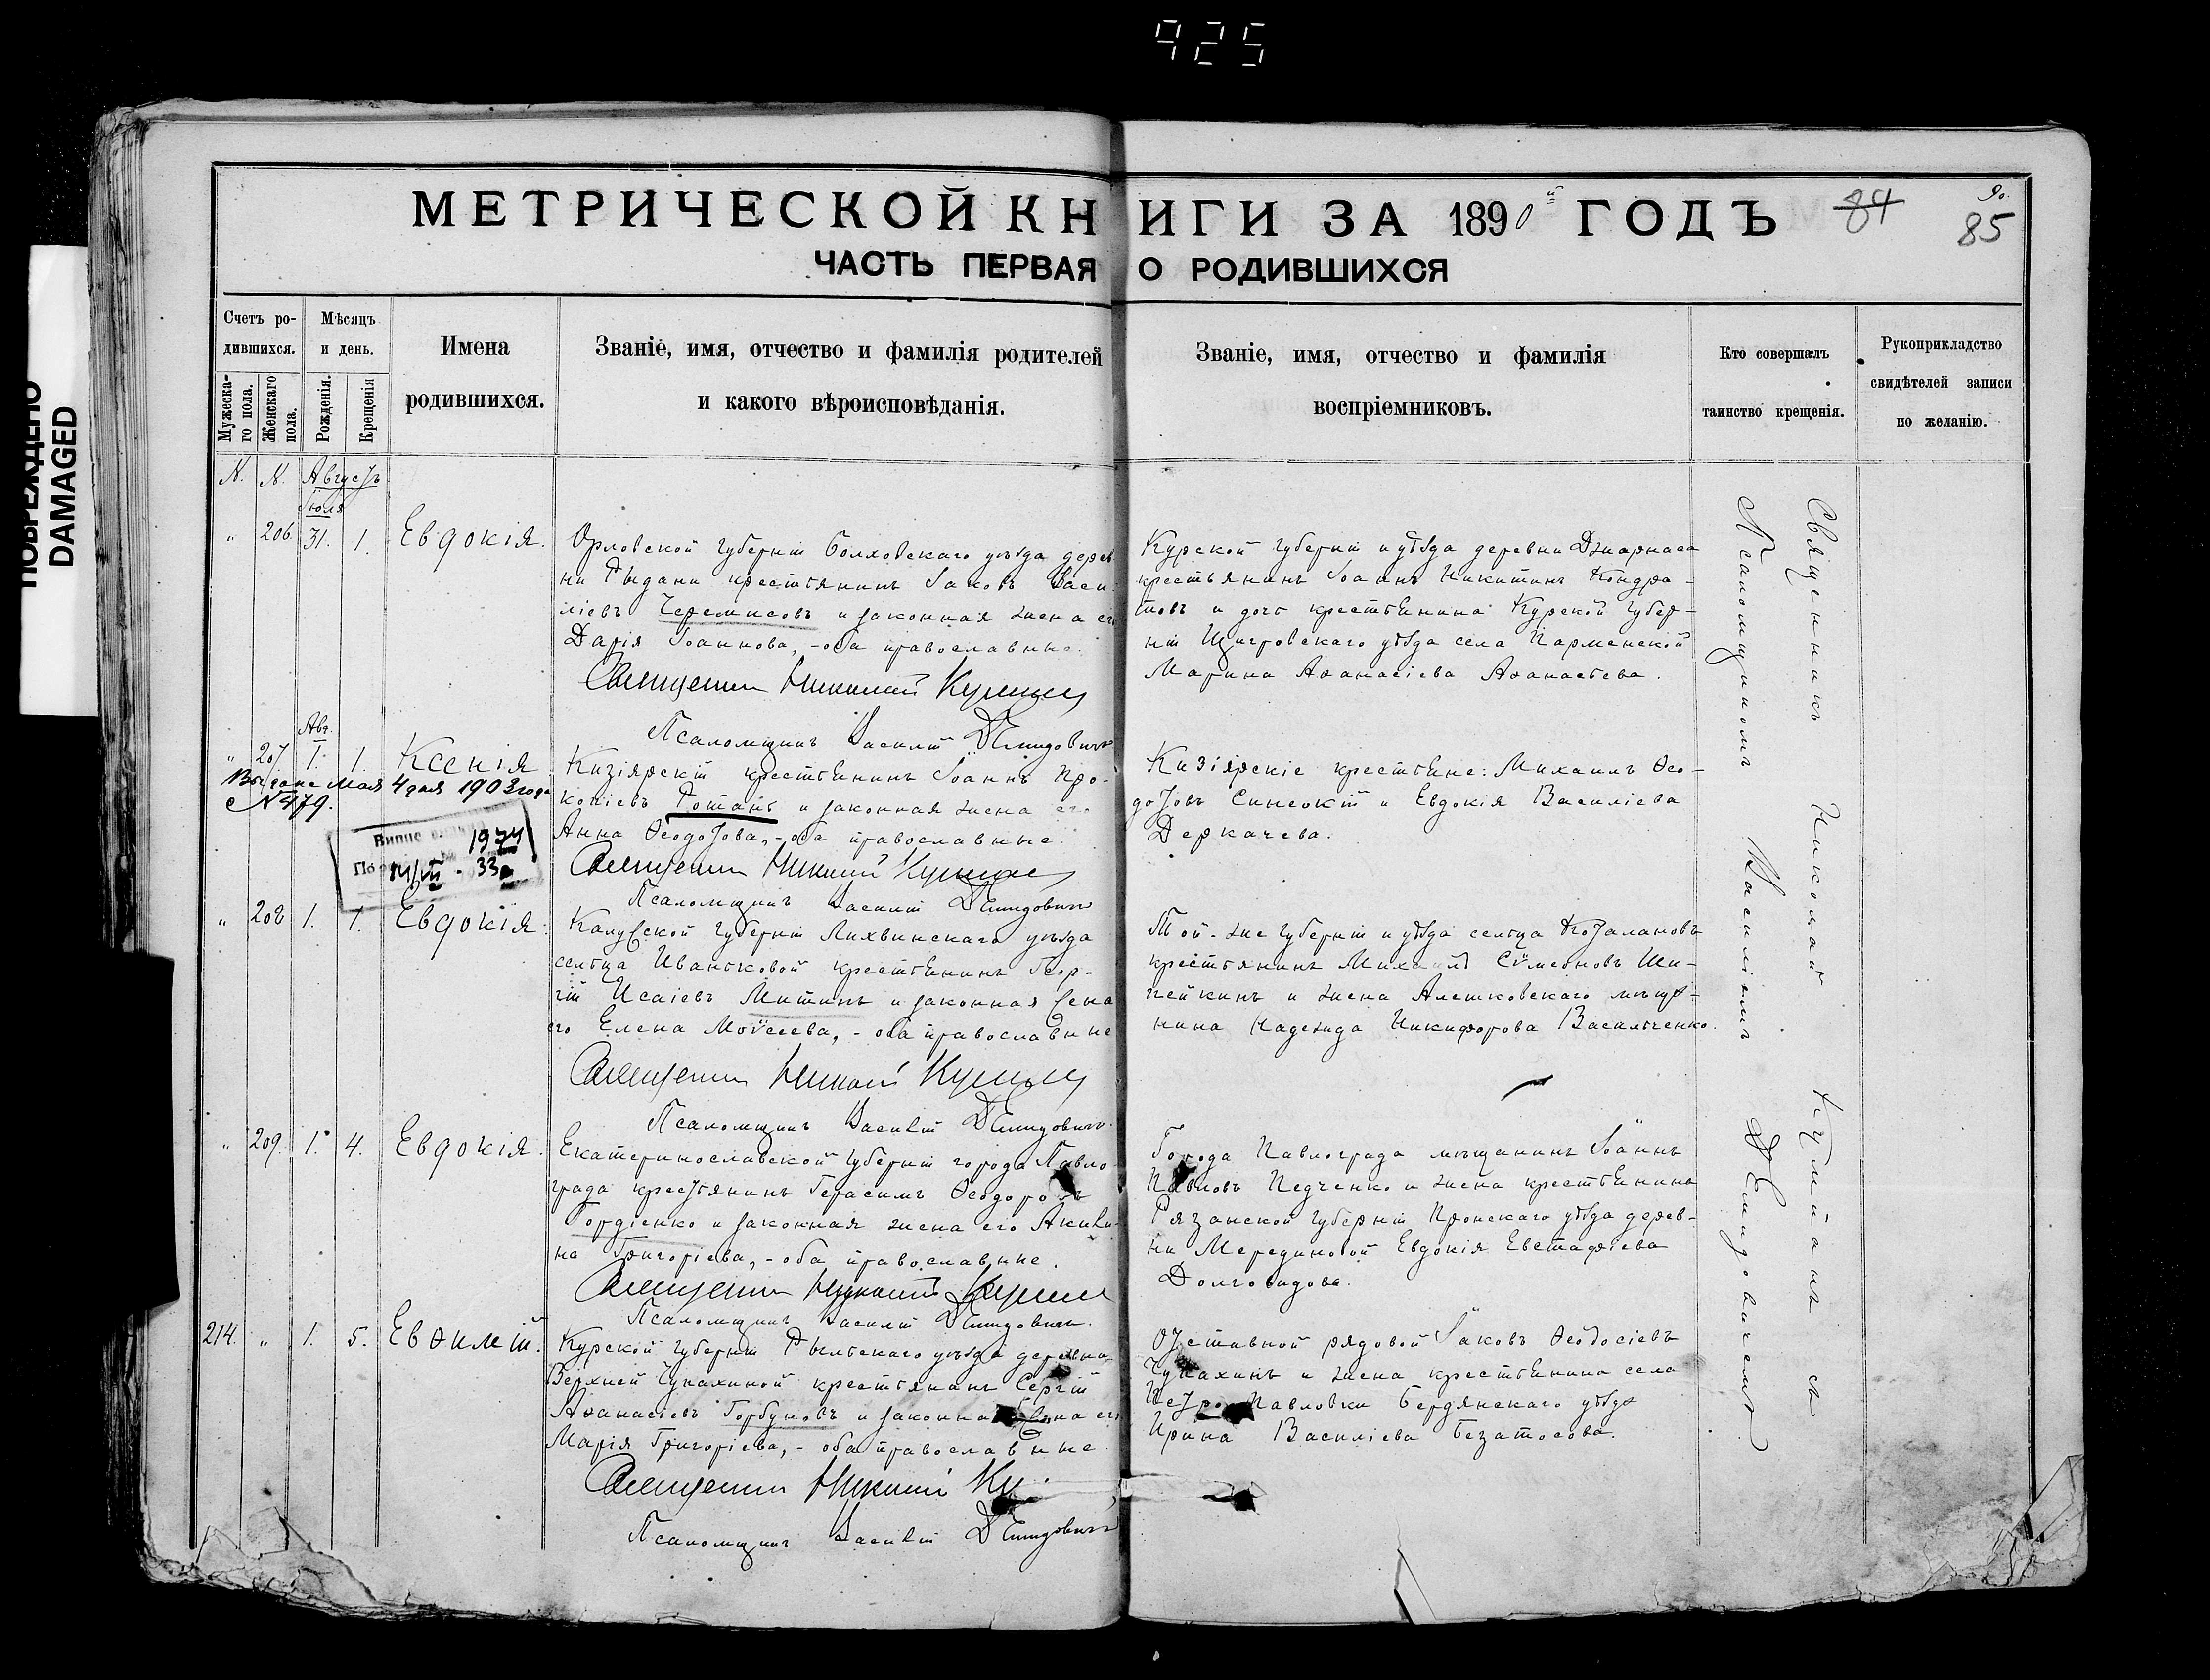 925
ПОВРЕЖДЕНО
DAMAGED
МЕТРИЧЕСКОЙ КНИГИ ЗА 1890й ГОДЪ
84
90.
85
ЧАСТЬ ПЕРВАЯ О РОДИВШИХСЯ
Счетъ ро-
дившихся.
Мужеска-
го пола.
Женскаго
пола.
Мѣсяцъ
и день.
Рожденія.
Крещенія
Имена
родившихся.
Званіе, имя, отчество и фамилія родителей
и какого вѣроисповѣданія.
Званіе, имя, отчество и фамилія
воспріемниковъ.
Кто совершалъ
таинство крещенія.
Рукоприкладство
свидѣтелей записи
по желанію.
N. N. Августъ
Іюля
" 206. 31. 1. Евдокія.
Орловской губерніи Болховскаго уѣзда дерев
ни Рыдани крестьянинъ Іаковъ Васи-
ліевъ Черемисовъ и законная жена его
Дарія Іоаннова, - оба православные.
Священникъ Николай
Псаломщикъ Василій Демидовичъ
Курской губерніи и уѣзда деревни
крестьянинъ Іоаннъ Никитинъ Кондра-
товъ и дочь крестьянина Курской губер-
ніи Щигровскаго уѣзда села Парменской
Марина Аѳанасіева Аѳанасьева.
Авг.
" 207 1. 1. Ксенія
Выдана Мая 4 дня 1903 года
N 479.
1974
14/VII - 33
Кизіярскій крестьянинъ Іоаннъ Про-
копіевъ Ротань и законная жена его
Анна Ѳеодотова, - оба православные.
Священникъ Николай
Псаломщикъ Василій Демидовичъ
Кизіярскіе крестьяне: Михаилъ Ѳео-
дотовъ Синеокій и Евдокія Василіева
Деркачева.
" 208 1. 1. Евдокія.
Калужской губерніи Лихвинскаго уѣзда
сельца Иваньковой крестьянинъ Геор-
гій Исаіевъ Митинъ и законная жена
его Елена Моѵсеева, - оба православные
Священникъ Николай
Псаломщикъ Василій Демидовичъ
Той-же губерніи и уѣзда сельца
крестьянинъ Михаилъ Сѵмеоновъ Ши-
пейкинъ и жена Алешковскаго мѣща-
нина Надежда Никифорова Васильченко.
" 209. 1. 4. Евдокія.
Екатеринославской губерніи города Павло-
града крестьянинъ Герасимъ Ѳеодоровъ
Гордіенко и законная жена его Акили-
на Григоріева, - оба православные.
Священникъ Николай
Псаломщикъ Василій Демидовичъ
Города Павлограда мѣщанинъ Іоаннъ
Павловъ Педченко и жена крестьянина
Рязанской губерніи Пронскаго уѣзда дерев-
ни Мерединовой Евдокія Евстафіева
Долговидова.
214. " 1. 5. Евѳимій.
Курской губерніи Рыльскаго уѣзда деревни
Верхней Чупахиной крестьянинъ Сергій
Аѳанасіевъ Горбуновъ и законная жена его
Марія Григоріева, - оба православные.
Священникъ Николай
Псаломщикъ Василій Демидовичъ
Отставной рядовой Іаковъ Ѳеодосіевъ
Чупахинъ и жена крестьянина села
Петро-Павловки Бердянскаго уѣзда
Ирина Василіева Безатосова.
Священникъ Николай съ
Псаломщикомъ Василіемъ Демидовичемъ